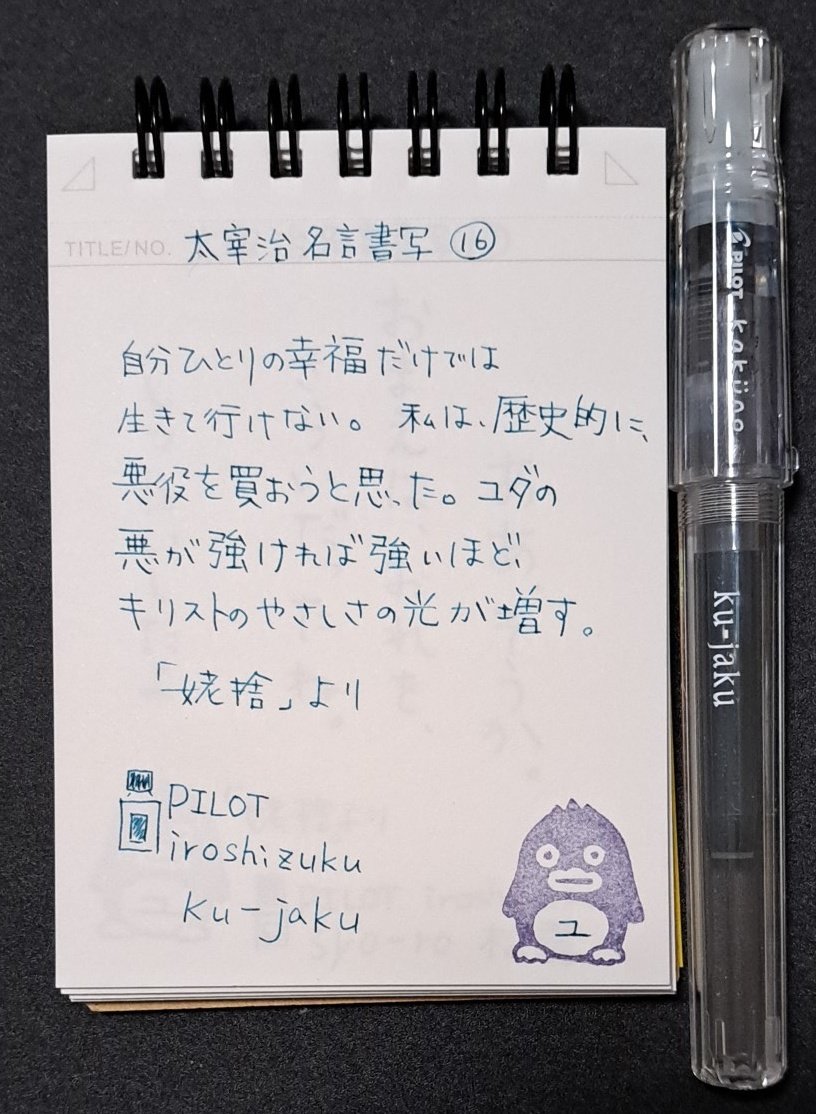 TITLE/NO. 太宰治名言書写 ⑯
自分ひとりの幸福だけでは
生きて行けない。私は、歴史的に、
悪役を買おうと思った。ユダの
悪が強ければ強いほど、
キリストのやさしさの光が増す。
「姥捨」より
PILOT
iroshizuku
ku-jaku
ユ
PILOT kaküno
ku-jaku